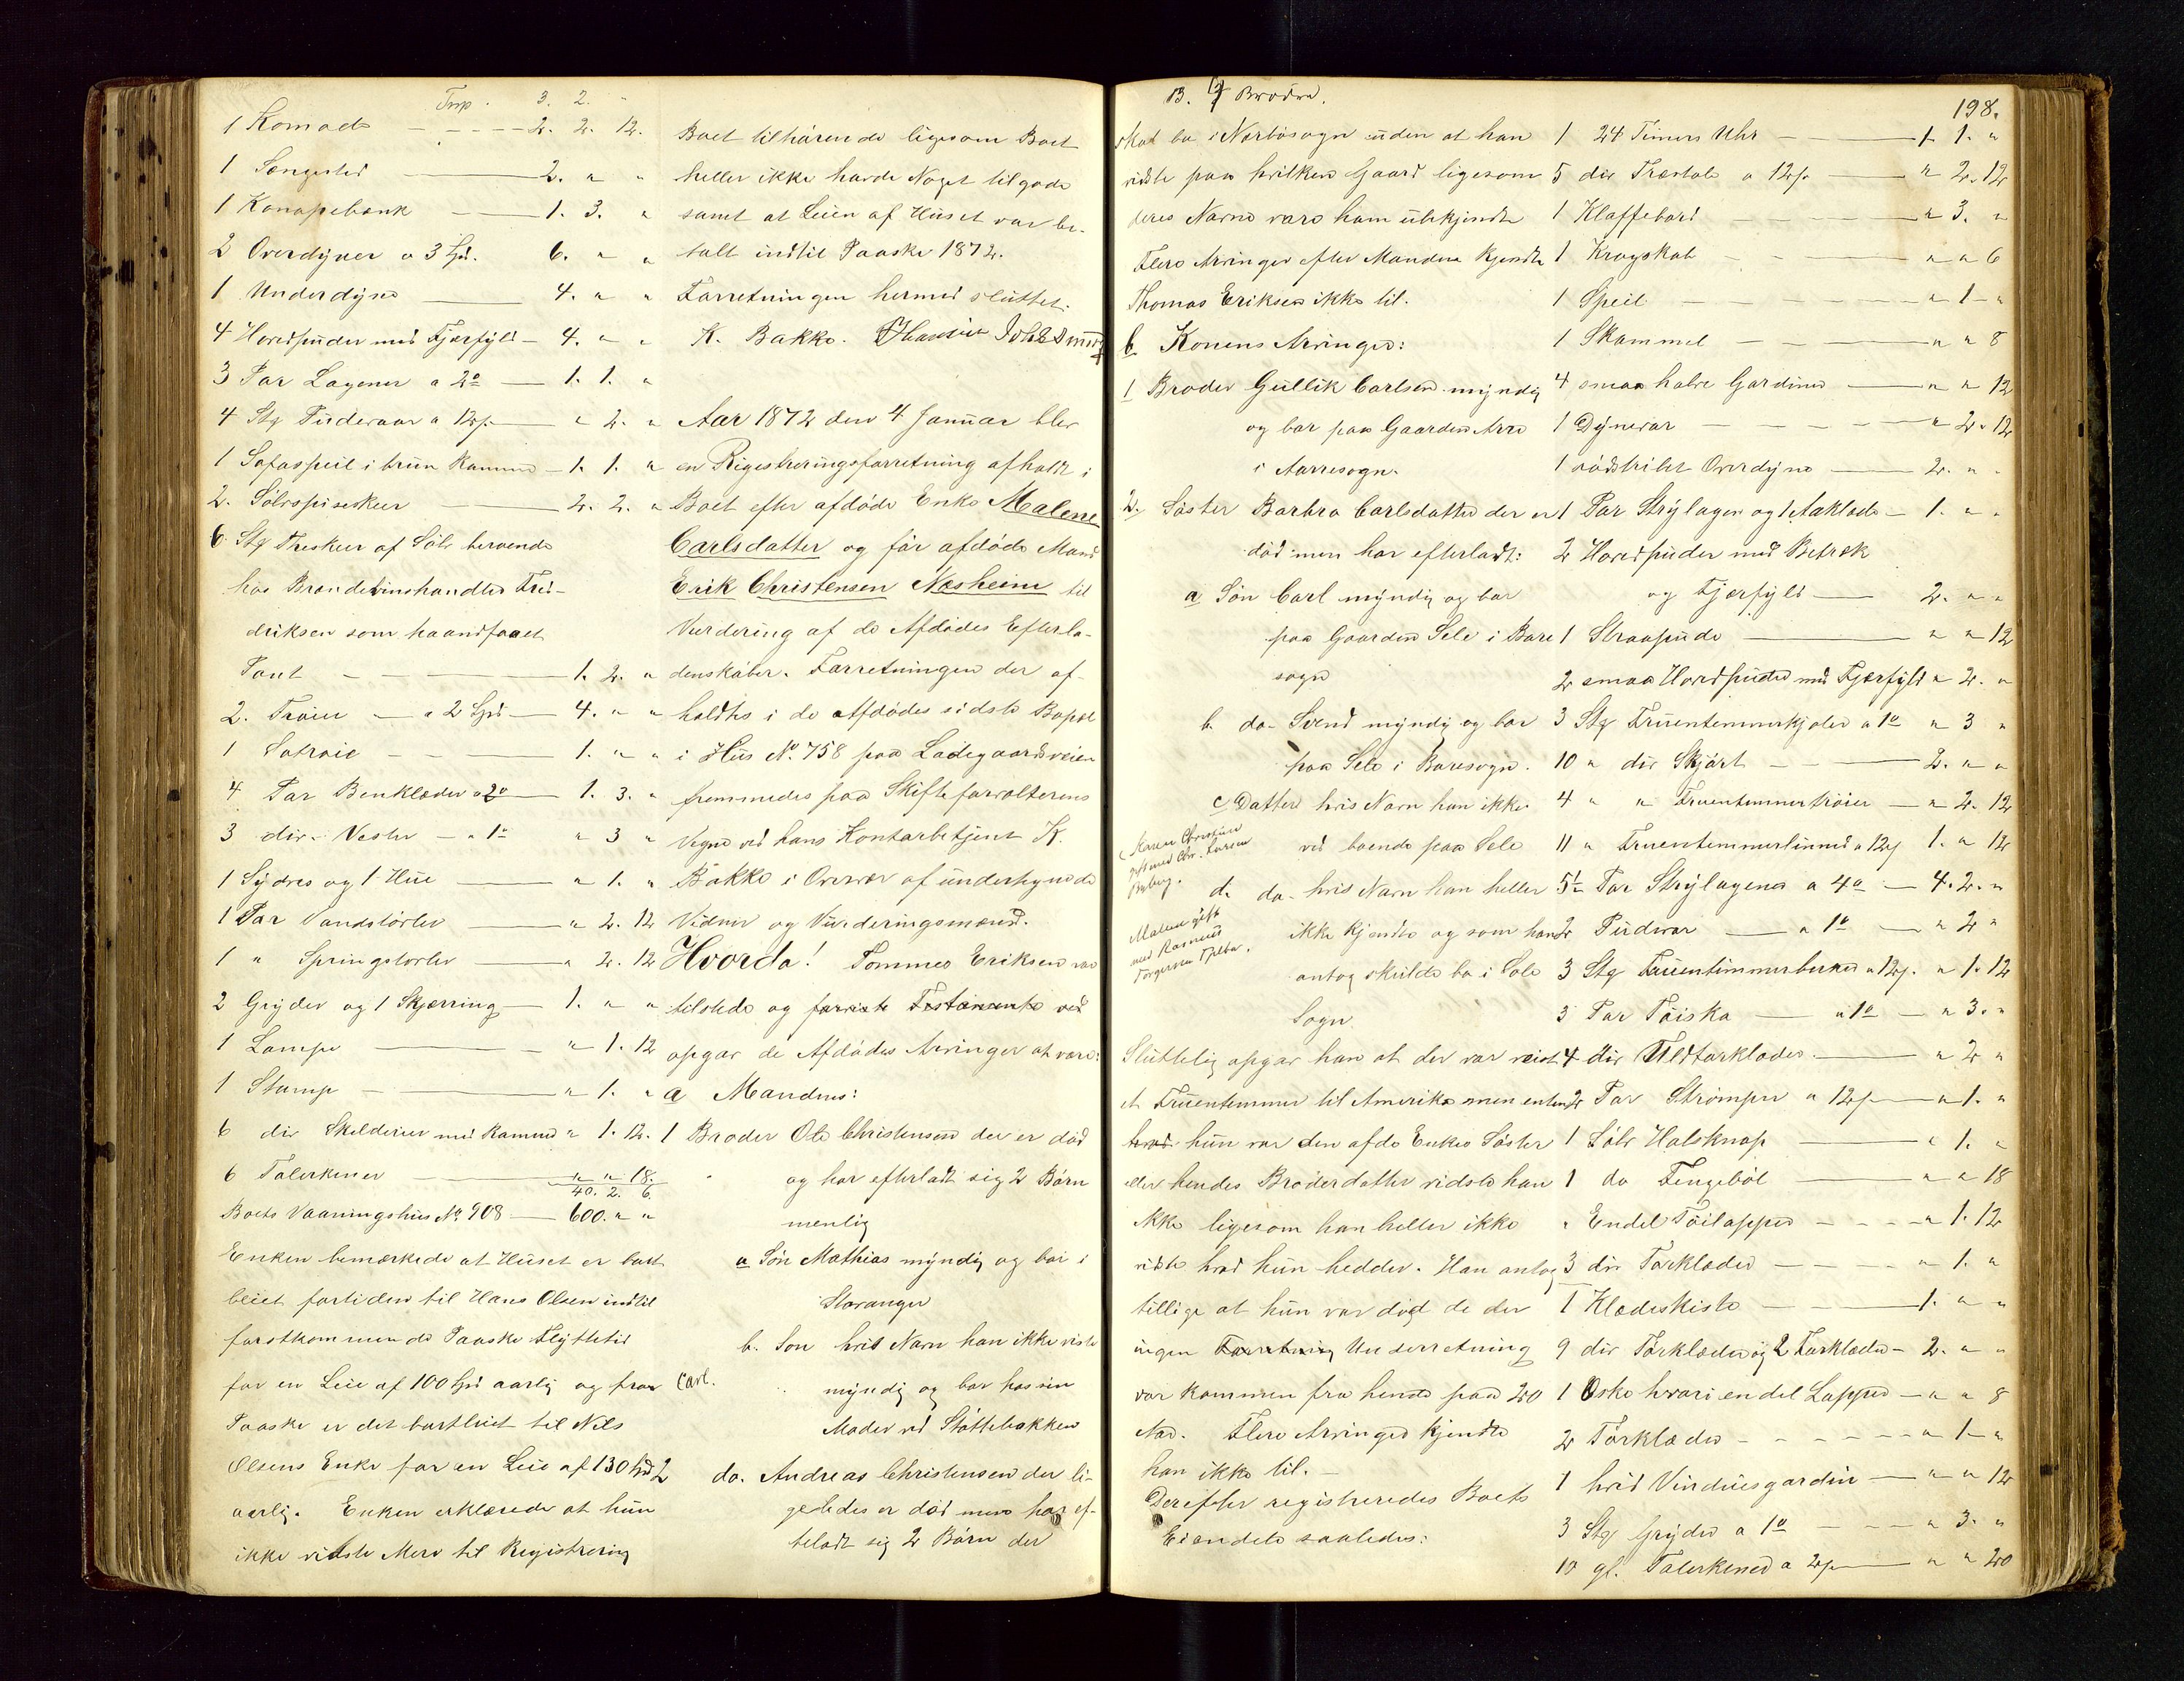 Trsp. 3. 2. "
1 Komode - - - - 2. 2. 12.
1 Sengested — 2. " "
1 Kanapebænk — 1. 3. "
2 Overdyner a 3 Spd. 6. " "
1 Underdyne — 4. " "
4 Hovedpuder med Fjærfyld - 4. " "
3 Par Lagener a 2o — 1. 1. "
4 Stk Pudevaar a 12ß — " 2. "
1 Sofaspeil i brun Ramme - 1. 1. "
2. Sølvspiseskeer — 2. 2. "
6 Stk Theskeer af Sølv beroende
hos Brændevinshandler Fre-
driksen som haandfaaet
Pant - — 1. 2. "
2. Trøier — a 2 Spd — 4. " "
1 - - — 1. " "
4 Par Benklæder a 2o — 1. 3. "
3 dir. Veste — a 1o " 3 "
1 Sydves og 1 Hue — " 1. "
1 Par Vandstøvler — " 2. 12
1 " Springstøvler — " 2. 12
2 Gryder og 1 Skjærring — 1. " "
1 Lampe — " 1. 12
1 Stamp — " 1. "
6 dir Skilderier med Ramme " 1. 12.
6 Talerkener — " " 18.
40. 2. 6.
Boets Vaaningshus No. 908 — 600. " "
Enken bemærkede at Huset er bort
leiet fortiden til Hans Olsen indtil
førstkommende Paaske Flyttetid
for en Leie af 100 Spd aarlig og fra
Paaske er det bortleiet til Nils
Olsens Enke for en Leie af 130 Spd
aarlig. Enken erklærede at hun
ikke vidste Mere til Registrering
Boet tilhørende ligesom Boet
heller ikke havde Noget tilgode
samt at Leien af Huset var be-
talt indtil Paaske 1872.
Forretningen hermed sluttet.
K. Bakke.
Aar 1872 den 4 Januar blev
en Registreringsforretning afholdt i
Boet efter afdøde Enke Malene
Carlsdatter og før afdøde Mand
Erik Christensen Næsheim til
Vurdering af de Afdødes Efterla-
denskaber. Forretningen der af-
holdtes i de Afdødes sidste Bopæl
i Hus No. 758 paa Ladegaardsveien
fremmedes paa Skifteforvalterens
Vegne ved hans Kontorbetjent K.
Bakke i Overvær af underhynede
Vidner og Vurderingsmænd.
Hvorda! Tommes Eriksen var
tilstede og foreviste Testamente ved
opgav de Afdødes Arvinger at være:
a Mandens:
1 Broder Ole Christensen der er død
og har efterladt sig 2 Børn
nemlig
a Søn Mathias myndig og boi i
Stavanger
b. Søn hvis Navn han ikke vidste
Carl.
myndig og bor hos sin
Moder ved Støttebakken
2 do. Andreas Christensen der li-
geledes er død men har ef-
terladt sig 2 Børn der
B. 17 Brødre.
198.
skal bo i Narbøsogn uden at han
vidste paa hvilken Gaard ligesom
deres Navne vare ham ubekjendte
Flere Arvinger efter Manden kjendte
Thomas Eriksen ikke til.
b Konens Arvinger:
1 Broder Gullik Carlsen myndig
og bor paa Gaarden Arre
i Aarresogn.
2. Søster Barbra Carlsdatter der er
død men har efterladt:
a Søn Carl myndig og bor
paa Gaarden Sele i Bore
sogn
b. do. Svend myndig og bor
paa Sele i Boresogn.
c Datter hvis Navn han ikke
ved boende paa Sele
Karen Christine
gift med Chr. Larsen
Byberg.
d. do. hvis Navn han heller
ikke kjendte og som han
antog skulde bo i Sole
Sogn
Malene gift
med Rasmus
Torgersen Tjelta.
Sluttelig opgav han at der var reist
et Fruentemmer til Amerika men enten
hvad hun var den afdø Enkes Søster
eller hendes Broderdatter vidste han
ikke ligesom han heller ikke
vidste hvad hun hedder. Han antog
tillige at hun var død da der
ingen Forretning Underretning
var kommen fra hende paa 20
Aar. Flere Arvinger kjendte
han ikke til. —
Derefter registreredes Boets
Eiendele saaledes:
1 24 Timers Uhr — 1. 1. "
5 dir Træstole a 12ß — " 2. 12
1 Klaffebord — " 3. "
1 Kragskab — " " 6
1 Speil — " 1 - "
1 Skammel — " " 8
4 smaa halve Gardiner — " " 12
1 Dynevar — " 2. 12
1 rødstribet Overdyne — 2. " "
1 Par Strylagen og 1 Aaklæde — 1. " "
2 Hovedpuder med Betræk
og Fjærfyld — 2. " "
1 Straapude — " " 12
2 smaa Hovedpuder med Fjærfyld " 2. "
3 Stk Fruentemmerkjoler a 1o " 3 "
10 " dir Skjørt — 2. " "
4 " " Fruentemmertrøier — " 2. 12
11 " Fruentemmerlinned a 12ß 1. " 12
5½ Par Strylagener a 4o — 4. 2. "
2 Pudevar — a 1o — " 2 "
3 Stk Fruentimmerbuxer a 12ß. " 1. 12
3 Par Tøiskø — a 1o — " 3. "
4 dir Uldtørklæder. — " 2 "
2 Par Strømper a 12ß — " 1. "
1 Sølv Halsknap — " 1. "
1 do Fingebøl — " " 18
" Endel Tøilapper - - - " 1. 12
3 dir Tørklæder — " 1. "
1 Klædeskiste — 1. " "
9 dir Tørklæder og 2 Forklæder - 2. " "
1 Æske hvori endel Lapper — " " 8
2 Tørklæder - - - - " 1 - "
1 hvid Vinduesgardin — " " 12
3 Stk Gryder a 1o — " 3. "
10 gl. Talerkener a 2ß — " " 20